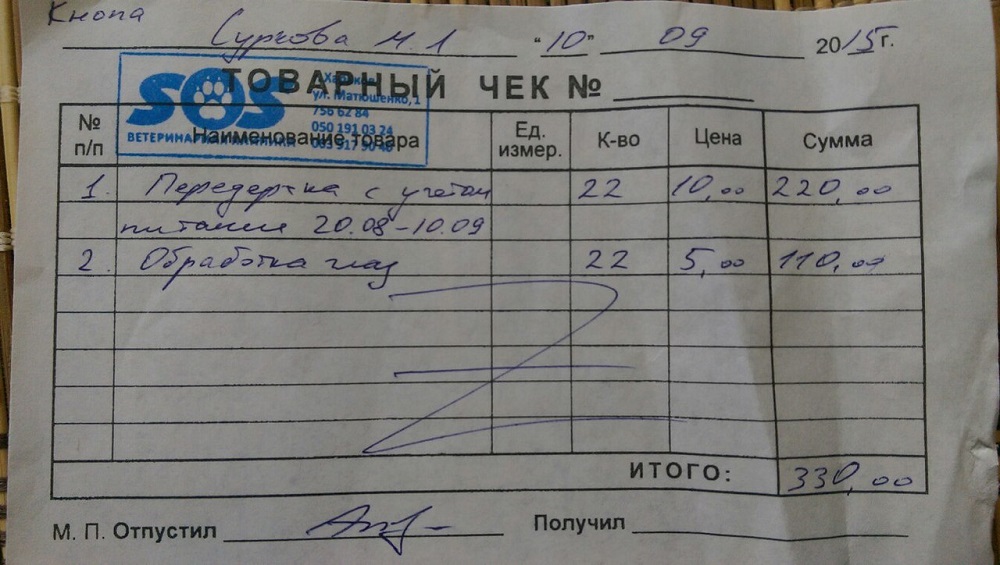 Кнопа
Суркова М. 1 "10" 09 2015г.
SOS
ВЕТЕРИНАРНАЯ КЛИНИКА
г. Харьков
ул. Матюшенко,1
756 62 84
050 191 03 24
ТОВАРНЫЙ ЧЕК №
№ п/п Наименование товара Ед. измер. К-во Цена Сумма
1. Передержка с учетом 22 10,00 220,00
питания 20.08-10.09
2. Обработка глаз 22 5,00 110,00
ИТОГО: 330,00
М. П. Отпустил Получил